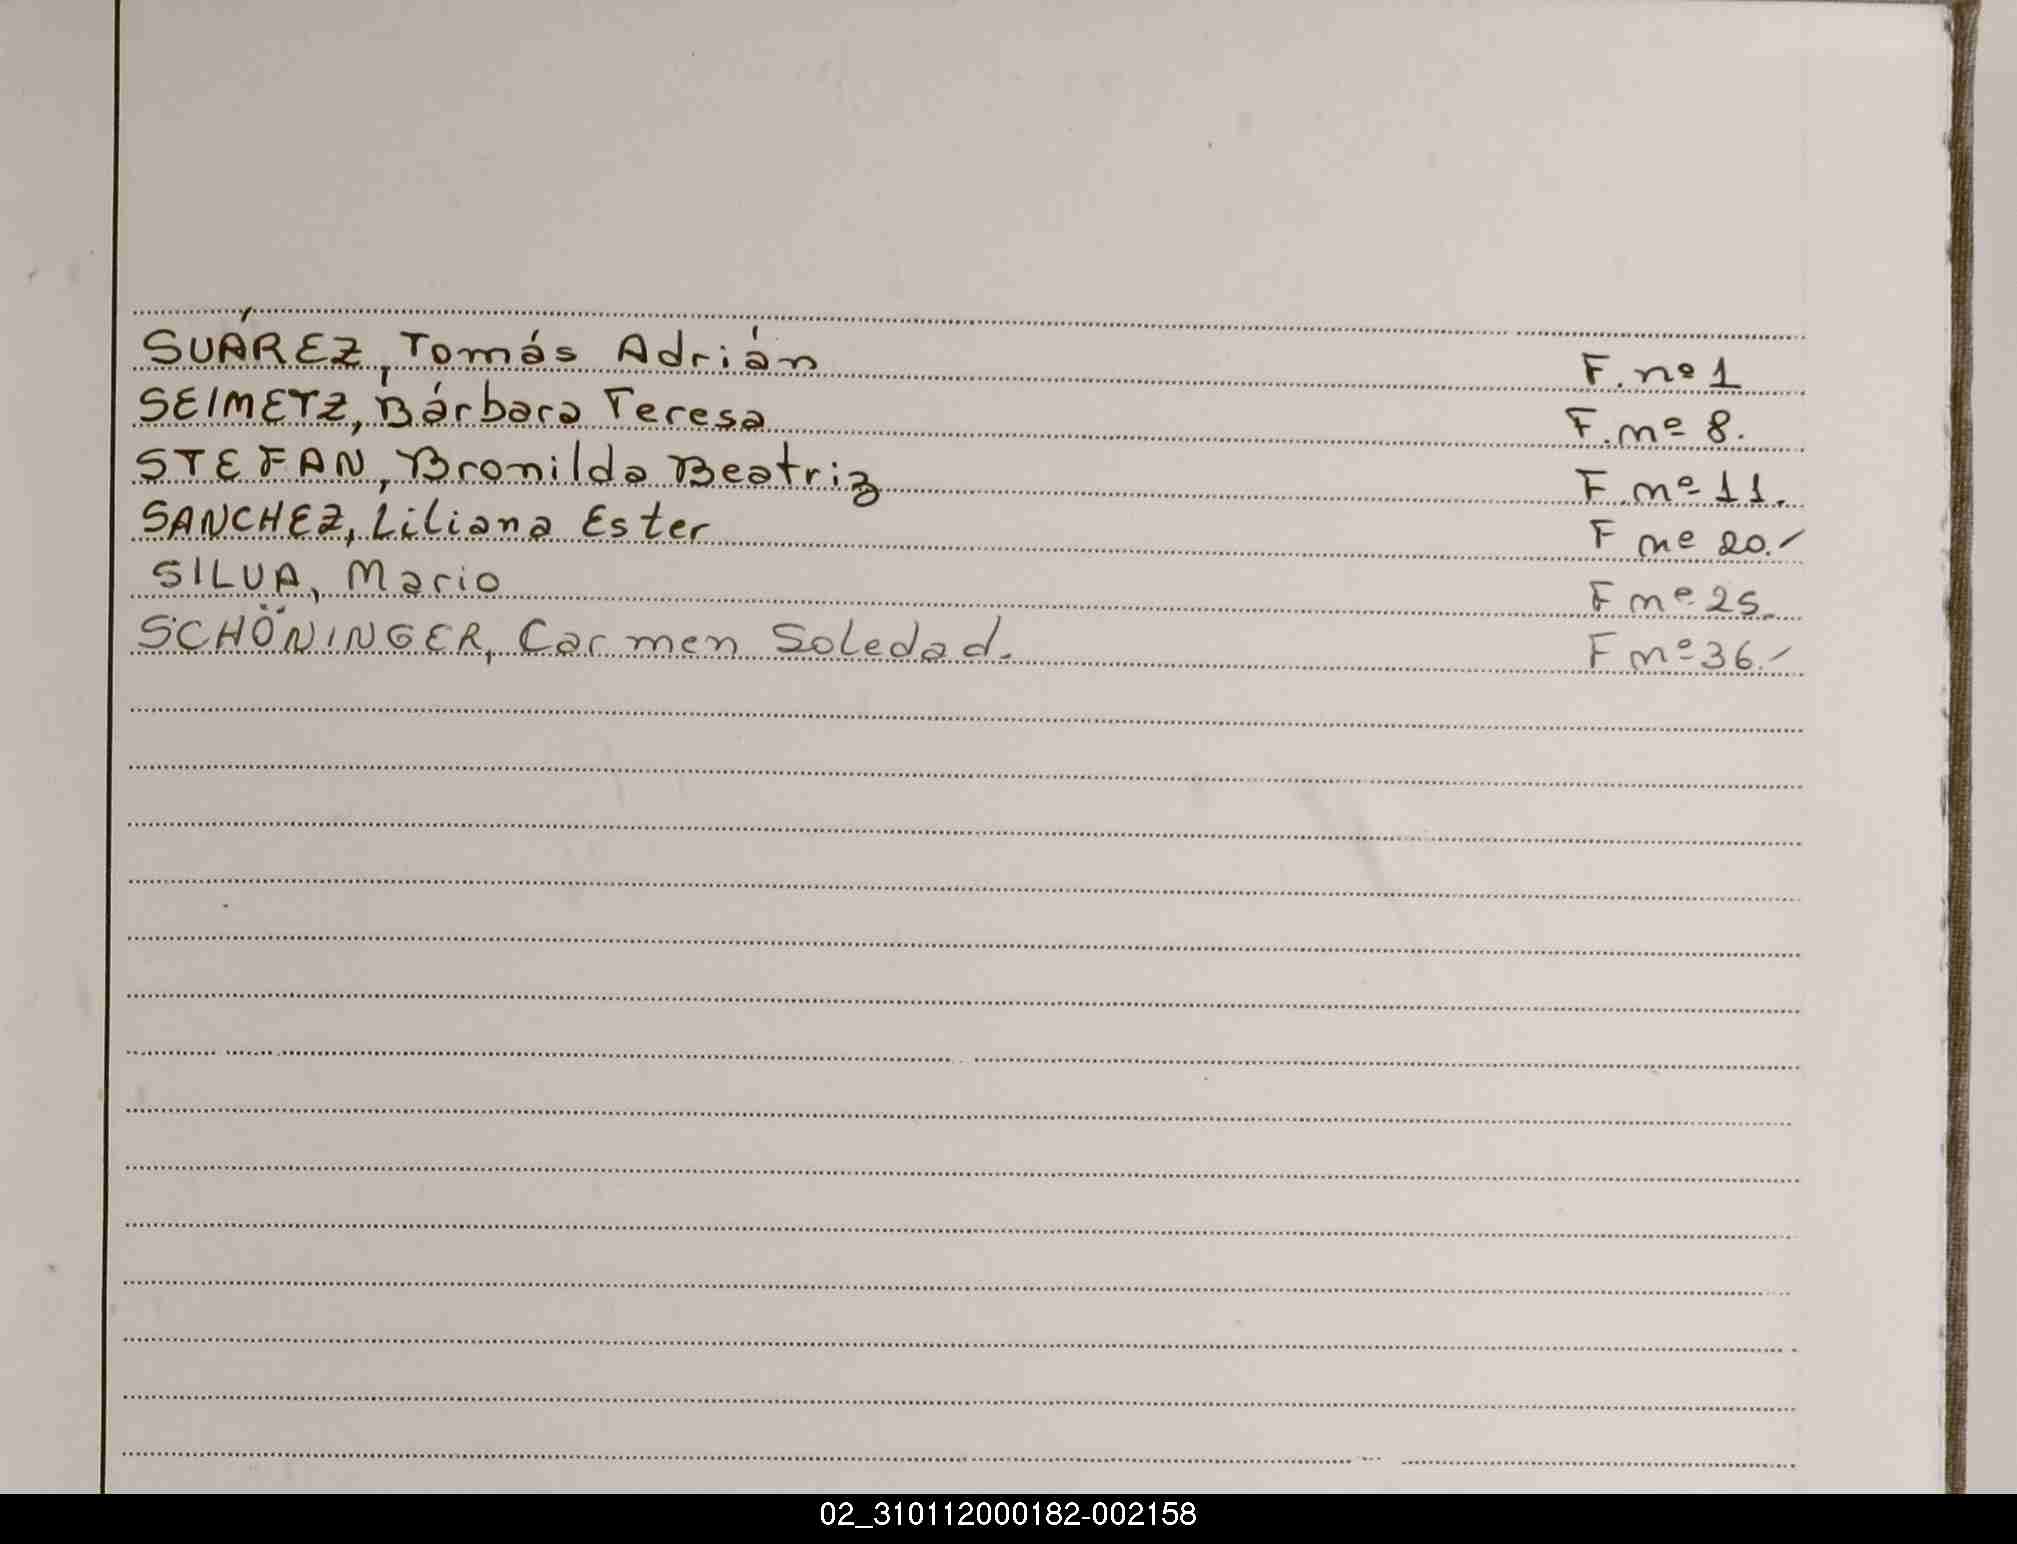 SUÁREZ, Tomás Adrián F. nº 1
SEIMETZ, Bárbara Teresa F. nº 8.
STEFAN, Bronilda Beatriz F. nº 11.
SANCHEZ, Liliana Ester F nº 20.-
SILVA, Mario F nº 25.
SCHÖNINGER, Carmen Soledad. F nº 36.-
02_310112000182-002158